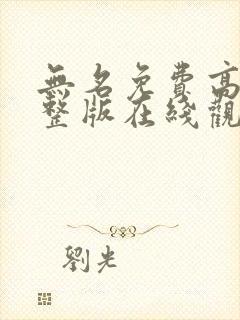 無名免費高
整版在綫觀
劉光